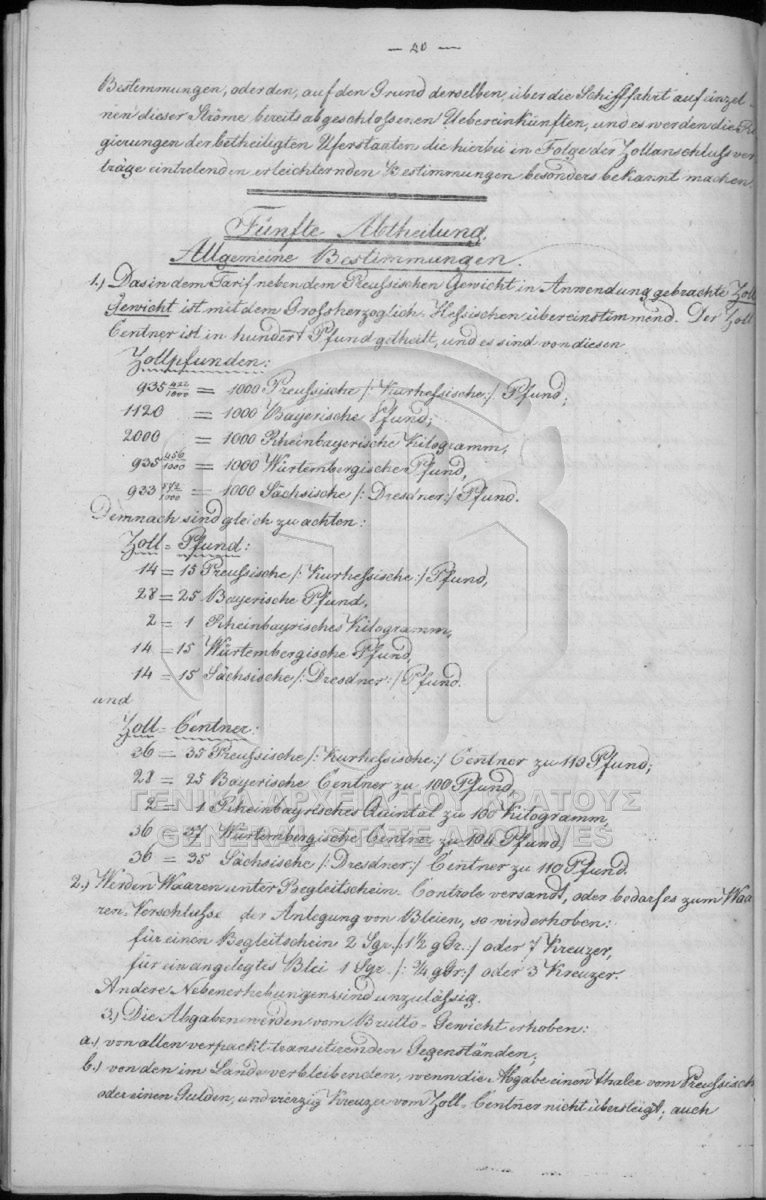 — 20 —
Bestimmungen, oder den, auf den Grund derselben, über die Schifffahrt auf einzel-
nen dieser Ströme bereits abgeschlossenen Uebereinkünften, und es werden die Re
gierungen der betheiligten Uferstaaten die hierbei in Folge der Zollanschluss ver
träge eintretenden erleichternden Bestimmungen besonders bekannt machen.
Fünfte Abtheilung.
Allgemeine Bestimmungen.
1.) Das in dem Tarif neben dem Preußischen Gewicht in Anwendung gebrachte Zoll
Gewicht ist mit dem Großherzoglich Hessischen übereinstimmend. Der Zoll
Centner ist in hundert Pfund getheilt, und es sind von diesen
Zollpfunden:
935 422/1000 = 1000 Preußische /: Kurheßische :/ Pfund;
1120 = 1000 Bayerische Pfund;
2000 = 1000 Rheinbayerische Kilogramm,
935 456/1000 = 1000 Würtembergische Pfund,
933 572/1000 = 1000 Sächsische /: Dresdner :/ Pfund.
Demnach sind gleich zu achten:
Zoll - Pfund:
14 = 15 Preußische /: Kurheßische :/ Pfund,
28 = 25 Bayerische Pfund,
2 = 1 Rheinbayrisches Kilogramm,
14 = 15 Würtembergische Pfund
14 = 15 Sächsische /: Dresdner :/ Pfund.
und
Zoll - Centner:
36 = 35 Preußische /: Kurheßische :/ Centner zu 110 Pfund;
28 = 25 Bayerische Centner zu 100 Pfund,
ΓΕΝΙΚΑ ΑΡΧΕΙΑ ΤΟΥ ΚΡΑΤΟΥΣ
2 = 1 Rheinbayrisches Quintal zu 100 Kilogramm,
GENERAL STATE ARCHIVES
36 = 37 Würtembergische Centner zu 104 Pfund
36 = 35 Sächsische /: Dresdner :/ Centner zu 110 Pfund.
2.) Werden Waaren unter Begleitschein-Controle versandt, oder bedarf es zum Waa
ren-Verschluße der Anlegung von Bleien, so wird erhoben:
für einen Begleitschein 2 Sgr. /: 1½ gGr. :/ oder 7 Kreuzer,
für ein angelegtes Blei 1 Sgr. /: ¾ gGr :/ oder 3 Kreuzer.
Andere Nebenerhebungen sind unzulässig.
3.) Die Abgaben werden vom Brutto-Gewicht erhoben:
a.) von allen verpackt transitirenden Gegenständen;
b.) von den im Lande verbleibenden, wenn die Abgabe einen Thaler vom Preußisch
oder einen Gulden, und vierzig Kreuzer vom Zoll-Centner nicht übersteigt; auch